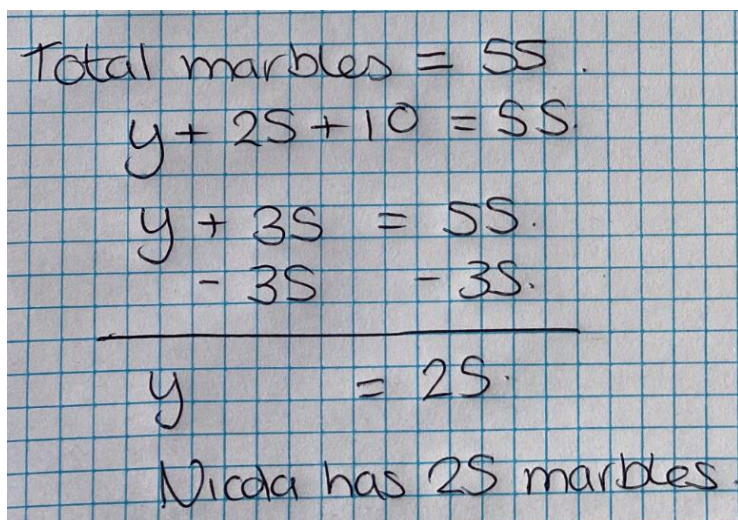 Total marbles = 55.
y + 25 + 10 = 55.
y + 35 = 55.
- 35 - 35.
y = 25.
Nicola has 25 marbles.